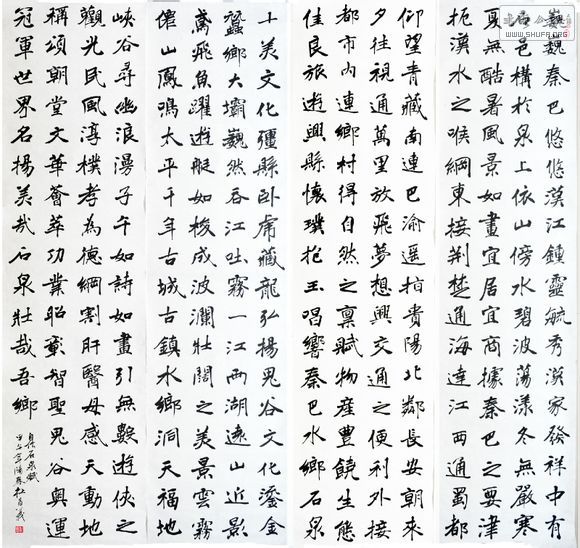 巍巍秦巴悠悠漢江鍾靈毓秀漢家發祥中有
石邑構於泉上依山傍水碧波蕩漾冬無嚴寒
夏無酷暑風景如畫宜居宜商據秦巴之要津
扼漢水之喉綱東接荆楚通海達江西通蜀都
仰望青藏南連巴渝遥指貴陽北鄰長安朝來
夕往視通萬里放飛夢想興交通之便利外接
都市内連鄉村得自然之禀賦物產豐饒生態
佳良旅遊興縣懷璞抱玉唱響秦巴水鄉石泉
十美文化疆縣卧虎藏龍弘揚鬼谷文化鎏金
蠶鄉大壩巍然吞江吐霧一江两湖遠山近影
鳶飛魚躍遊艇如梭成波瀾壯闊之美景雲霧
僊山鳳鳴太平千年古城古鎮水鄉洞天福地
峽谷尋幽浪漫子午如詩如畫引無數遊俠之
觀光民風淳樸孝為德綱割肝醫母感天動地
稱頌朝堂文華薈萃功業昭彰智聖鬼谷奥運
冠軍世界名揚美哉石泉壯哉吾鄉
石泉賦
甲午
WWW.SHUFR.ORG